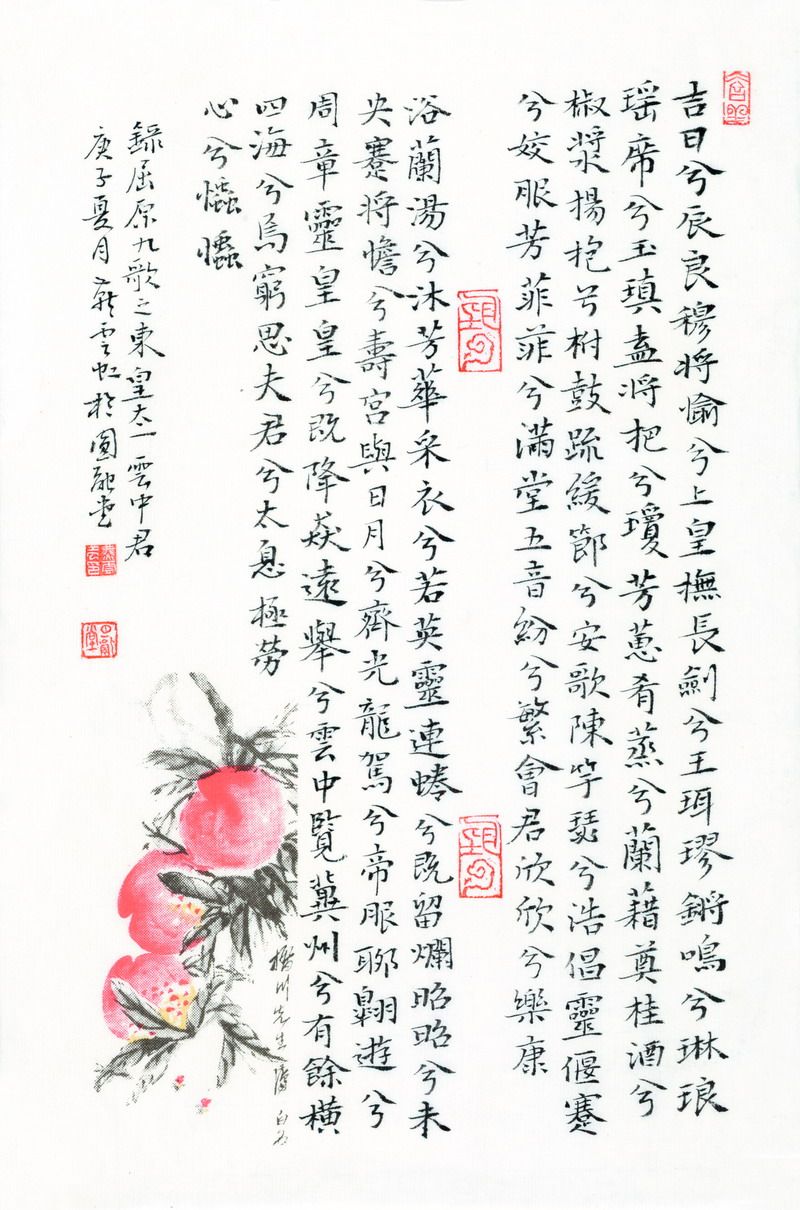 吉日兮辰良穆将愉兮上皇撫長劍兮王珥璆鏘鳴兮琳琅
瑶席兮玉瑱盍将把兮瓊芳蕙肴蒸兮蘭藉奠桂酒兮
椒漿揚抱兮拊鼓疏緩節兮安歌陳竽瑟兮浩倡靈偃蹇
兮姣服芳菲菲兮滿堂五音紛兮繁會君欣欣兮樂康
浴蘭湯兮沐芳華采衣兮若英靈連蜷兮既留爛昭昭兮未
央蹇将憺兮壽宮與日月兮齊光龍駕兮帝服聊翱遊兮
周章靈皇皇兮既降猋遠舉兮雲中覽冀州兮有餘橫
四海兮焉窮思夫君兮太息極勞
心兮𢥞𢥞
錄屈原九歌之東皇太一雲中君
庚子夏月雲虹於圓融堂
先生